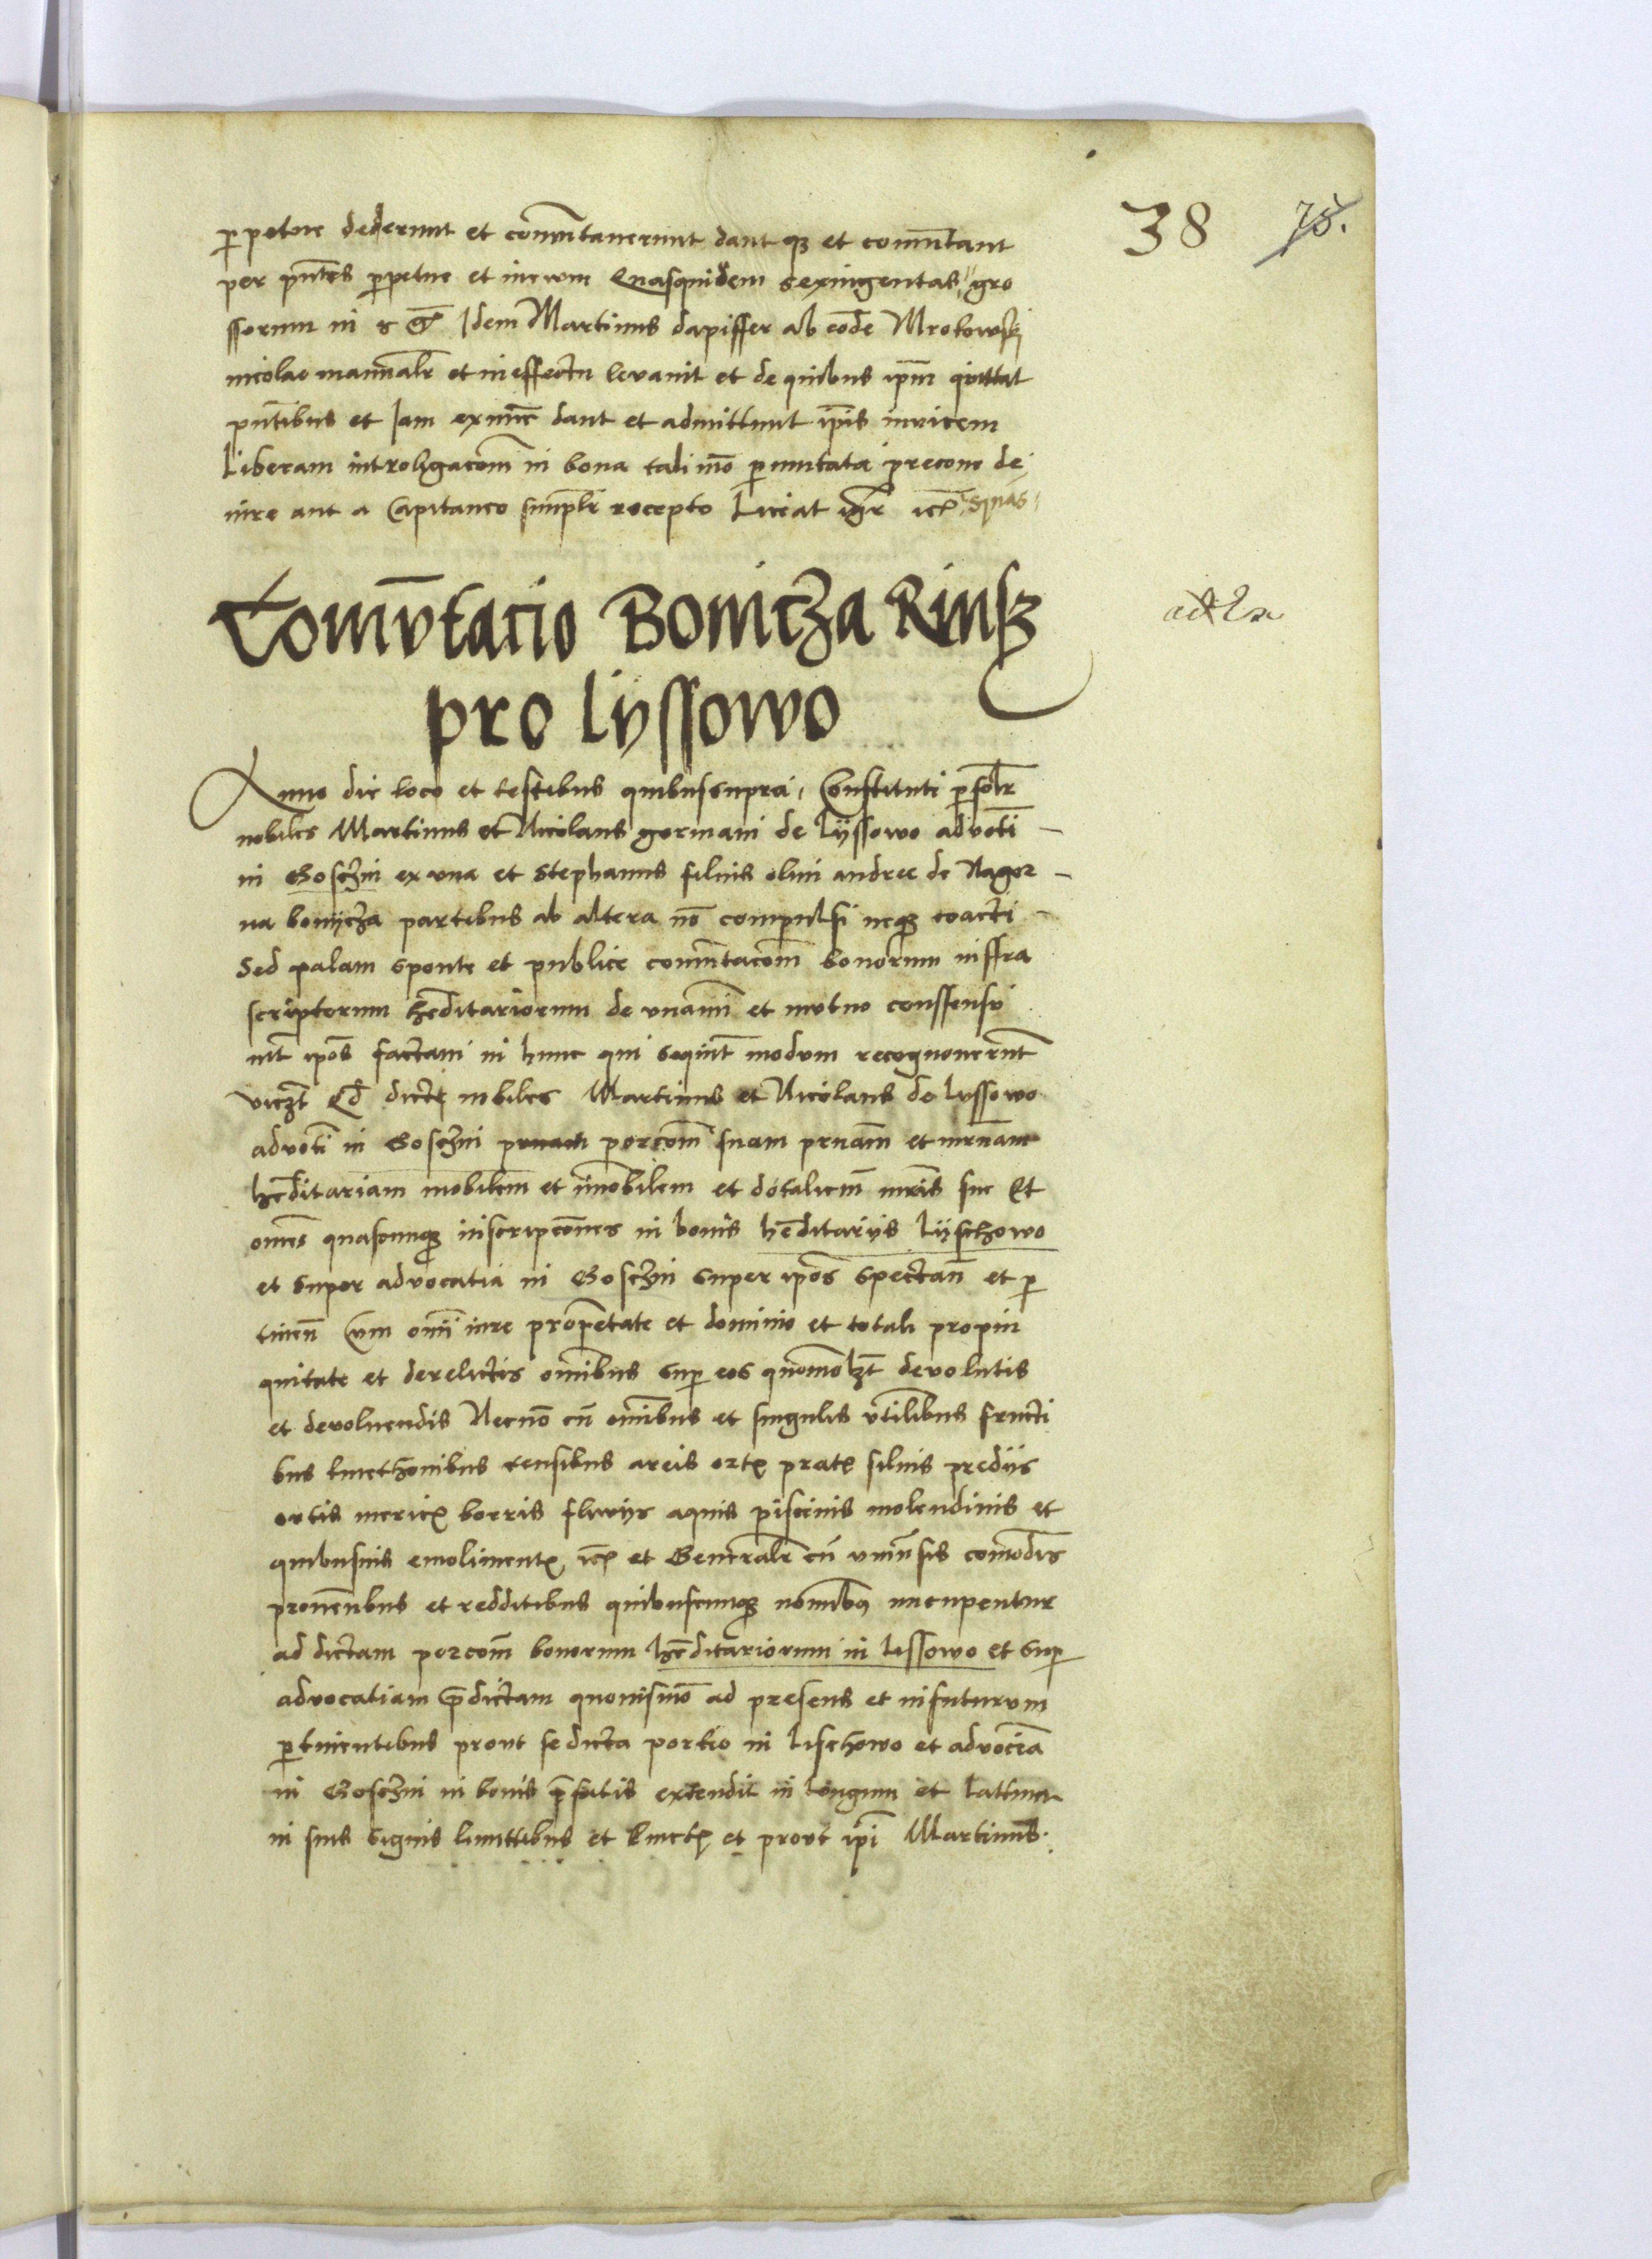 38 75.
ppetue dederunt et comutauerunt dant qz et comutant
per pntes ppetue et in ewm Quasquidem sexingentas gro
ssorum in s Idem Martinus dapiffer ab eode Mrokowskj
nicolao manualr et in effectu leuauit et de quibus ipm quittat
pntibus et Jam exnunc dant et admittunt ipis inuicem
Liberam introligacom in bona tali mo pmutata precone de
iure aut a Capitaneo simplr recepto Liceat
Comutacio Bonicza Kinsz
pro lyssowo
Anno die loco et testibus quibussupra Constituti psolr
nobiles Martinus et Nicolaus germani de lyssowo advocti
in Gosczin ex vna et Stephanus filius olim andree de Nagor
na boniycza partibus ab altera no compulsi neqz coacti
Sed palam sponte et publice comutacom bonorum inffra
scriptorum hditariorum de vnanimi et mutuo conssensu
int ipos factam in hunc qui sequint modum recognouerunt
viczt Qd dicti nobiles Martinus et Nicolaus de lyssowo
advocti in Gosczin porcom suam prnam et mrnam
hditariam mobilem et imobilem et dotalicm mris sue Et
omes quascunqz inscripcones in bonis hditariis lyschowo
et super advocatia in Gosczin super ipos spectan et p
tinen Cum omi iure proprietate et dominio et totali propin
quitate et derelictis omibus sup eos quomolzt devolutis
et devoluendis Necno cu omibus et singulis vtilibus fructi
bus kmethonibus censibus areis prat siluis prediis
ortis meric borris fluviis aquis piscinis molendinis et
quibusuis emoliment et Generalr cu vniusis comodis
prouentibus et redditibus quibuscunqz nominibus nncupentur
ad dictam porcom bonorum hditariorum in lissowo et sup
advocatiam pdictam quouismo ad presens et infuturum
ptinentibus prout se dicta portio in lischowo et advocia
in Gosczin in bonis pfatis extendit in longum et lattum
in suis signis limittibus et et prout ipi Martinus